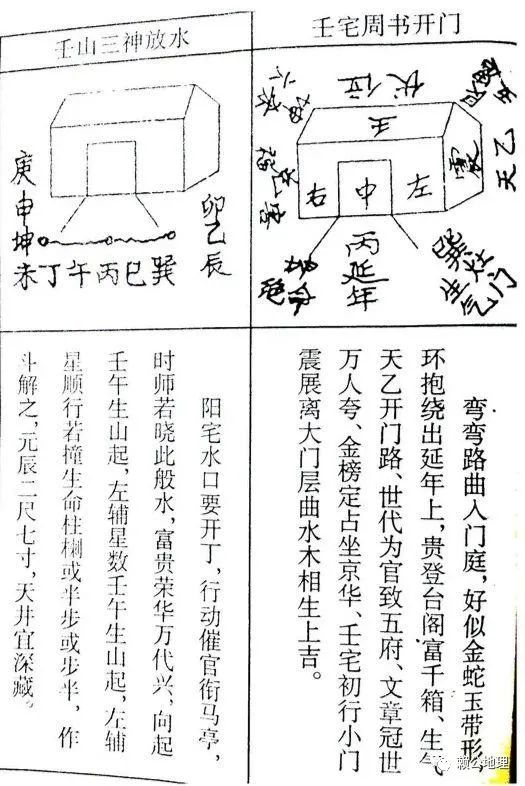 壬宅周书开门
伏位
壬
天乙
右
中
左
丙延年
巽灶
生气门
弯弯路曲入门庭，好似金蛇玉带形，
环抱绕出延年上，贵登台阁富千箱、生气
天乙开门路、世代为官致五府、文章冠世
万人夸、金榜定占坐京华、壬宅初行小门
震展离大门层曲水木相生上吉。
壬山三神放水
庚申坤
卯乙辰
未丁午丙巳巽
阳宅水口要开丁，行动催官衔马亭，
时师若晓此般水，富贵荣华万代兴，向起
壬午生山起，左辅星数壬午生山起，左辅
星顺行若撞生命柱㭡或半步或步半，作
斗解之，元辰二尺七寸，天井宜深藏。
赖公地理